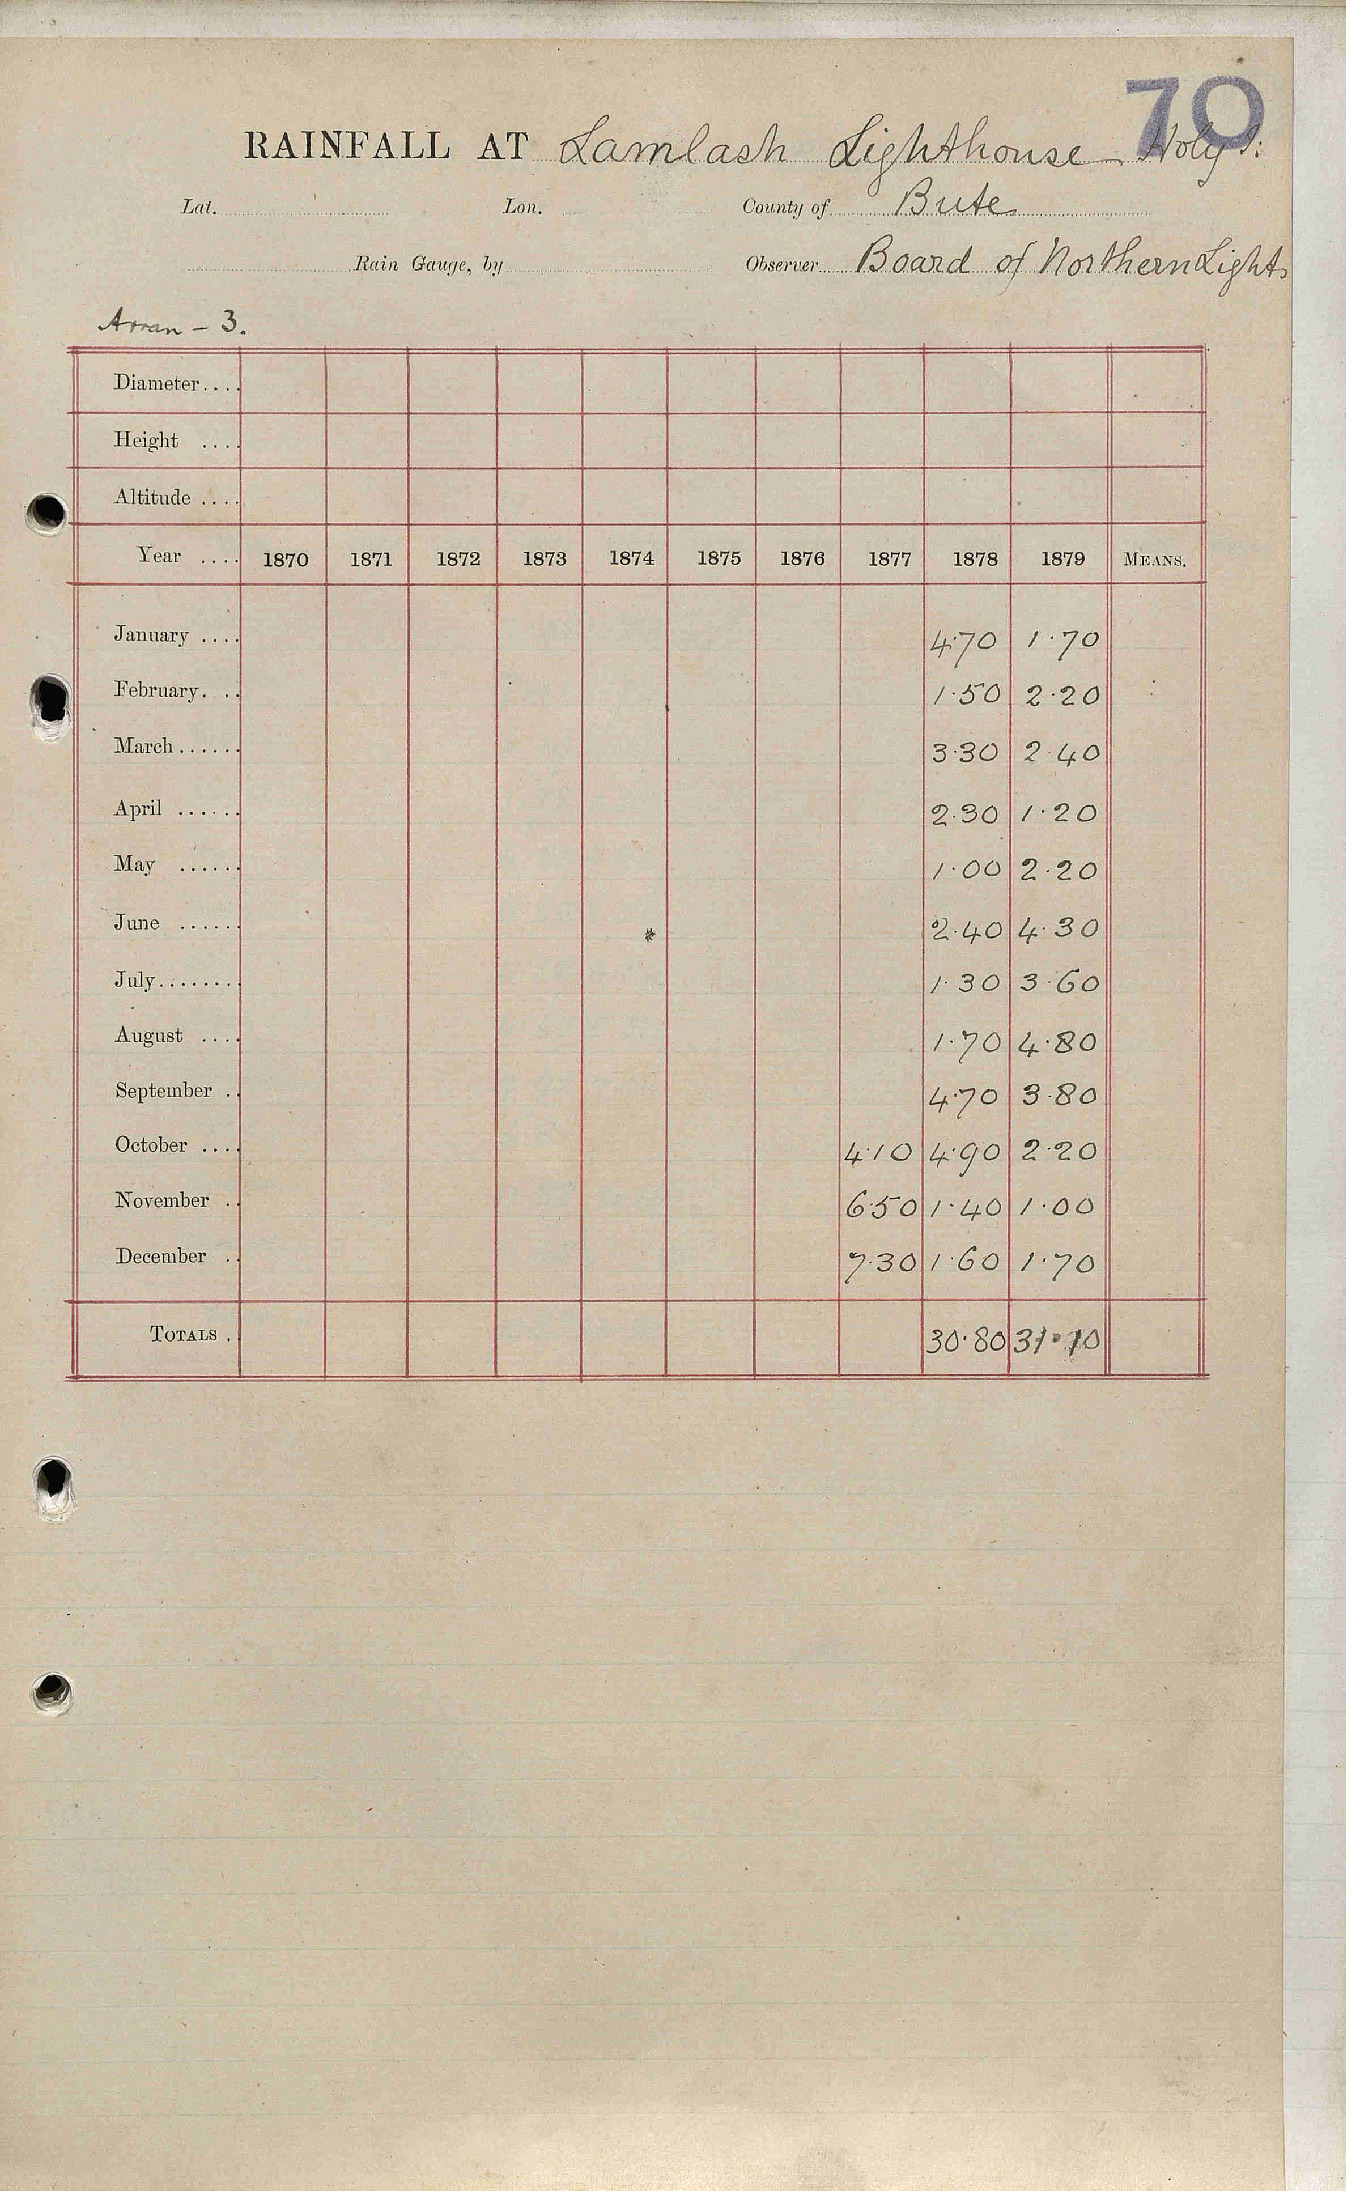 70
RAINFALL AT Lamlash Lighthouse – Holy I:
Lat. Lon. County of Bute
Rain Gauge, by Observer Board of Northern Lights
Arran – 3.
Diameter....
Height ....
Altitude ....
Year .... 1870 1871 1872 1873 1874 1875 1876 1877 1878 1879 MEANS.
January .... 4·70 1·70
February. .. 1·50 2·20
March...... 3·30 2·40
April ...... 2·30 1·20
May ...... 1·00 2·20
June ...... 2·40 4·30
July........ 1·30 3·60
August .... 1·70 4·80
September .. 4·70 3·80
October .... 4·10 4·90 2·20
November .. 6·50 1·40 1·00
December .. 7·30 1·60 1·70
TOTALS . 30·80 31·10